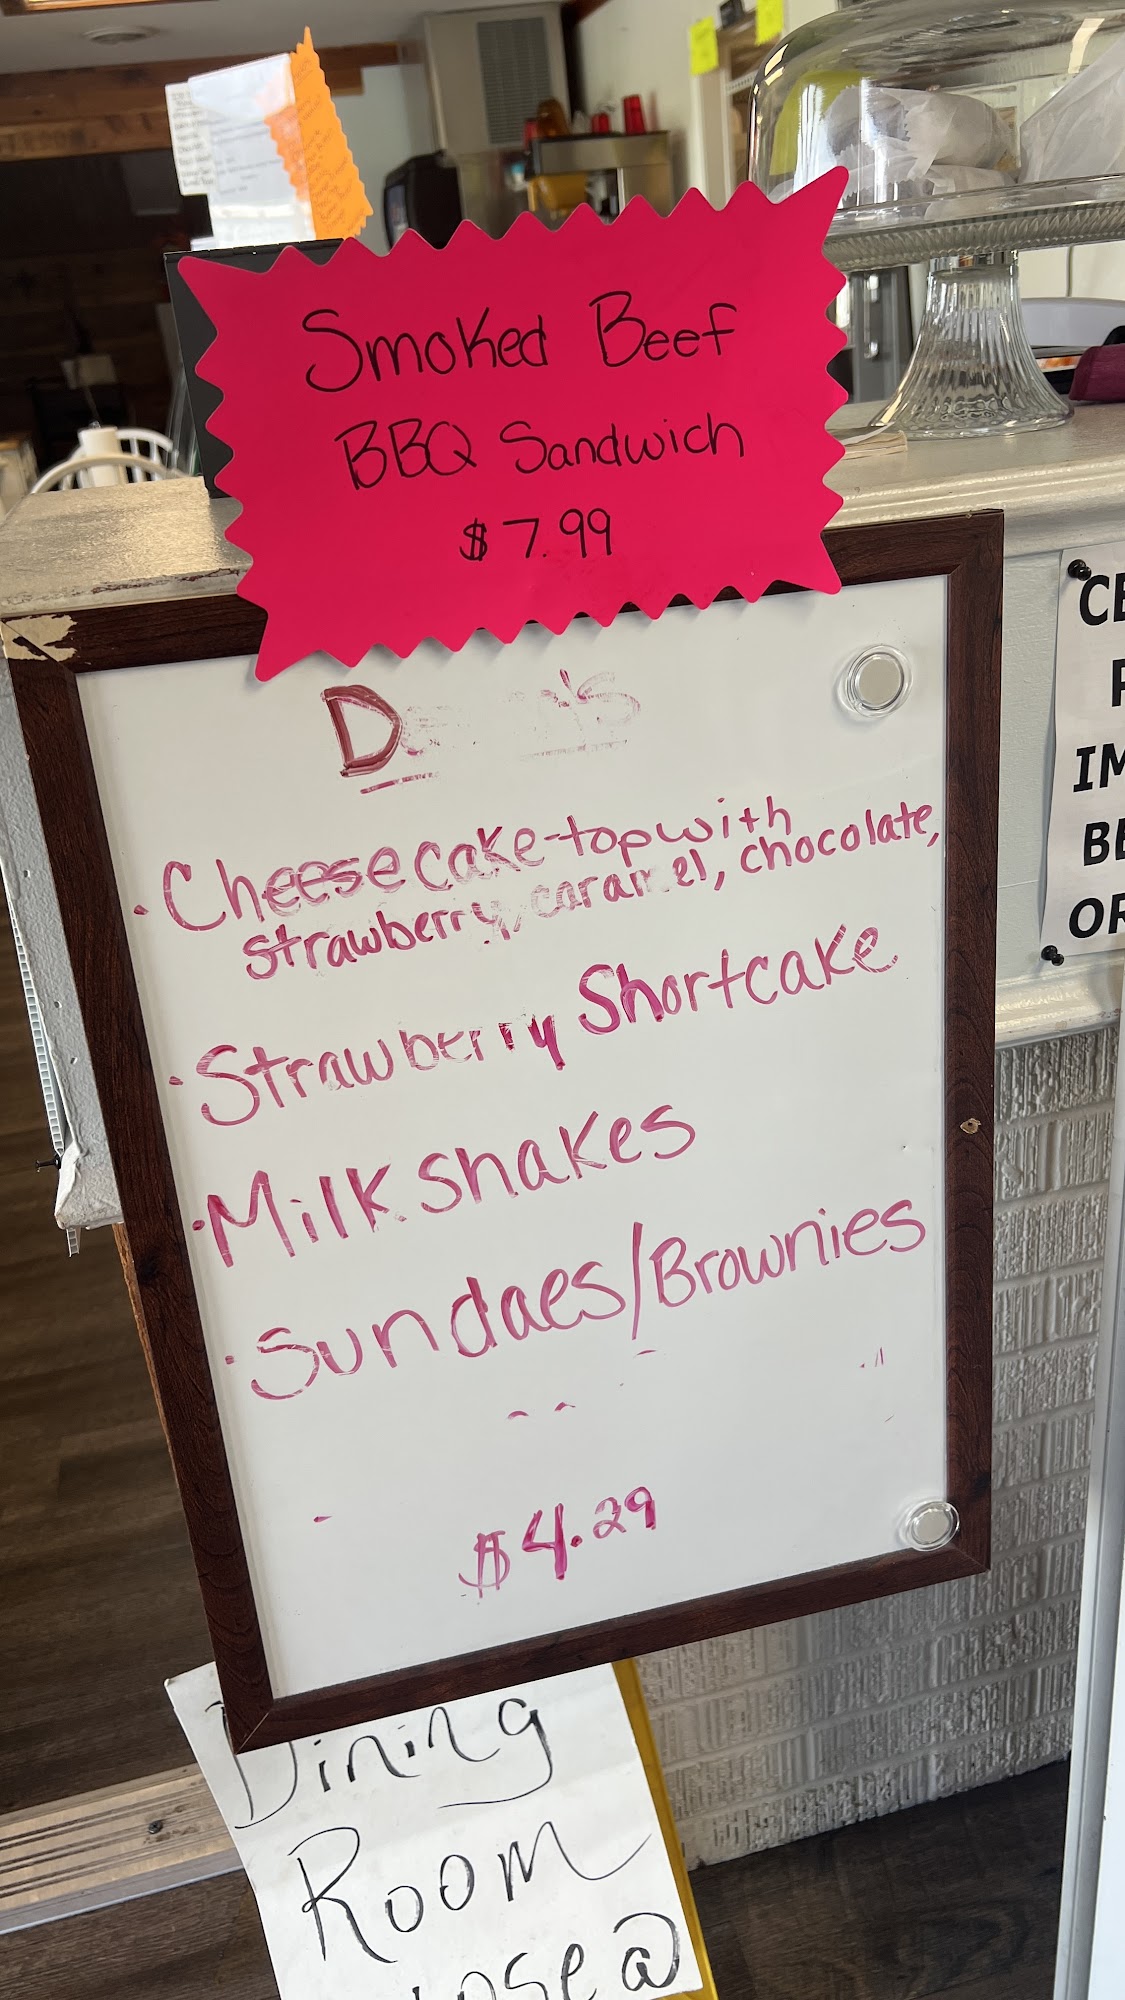 Smoked Beef
BBQ Sandwich
$7.99
· Cheesecake-top with
strawberry, caramel, chocolate,
· Strawberry Shortcake
· Milkshakes
· Sundaes/Brownies
$4.29
Dining
Room
@
CE
IM
BE
OR